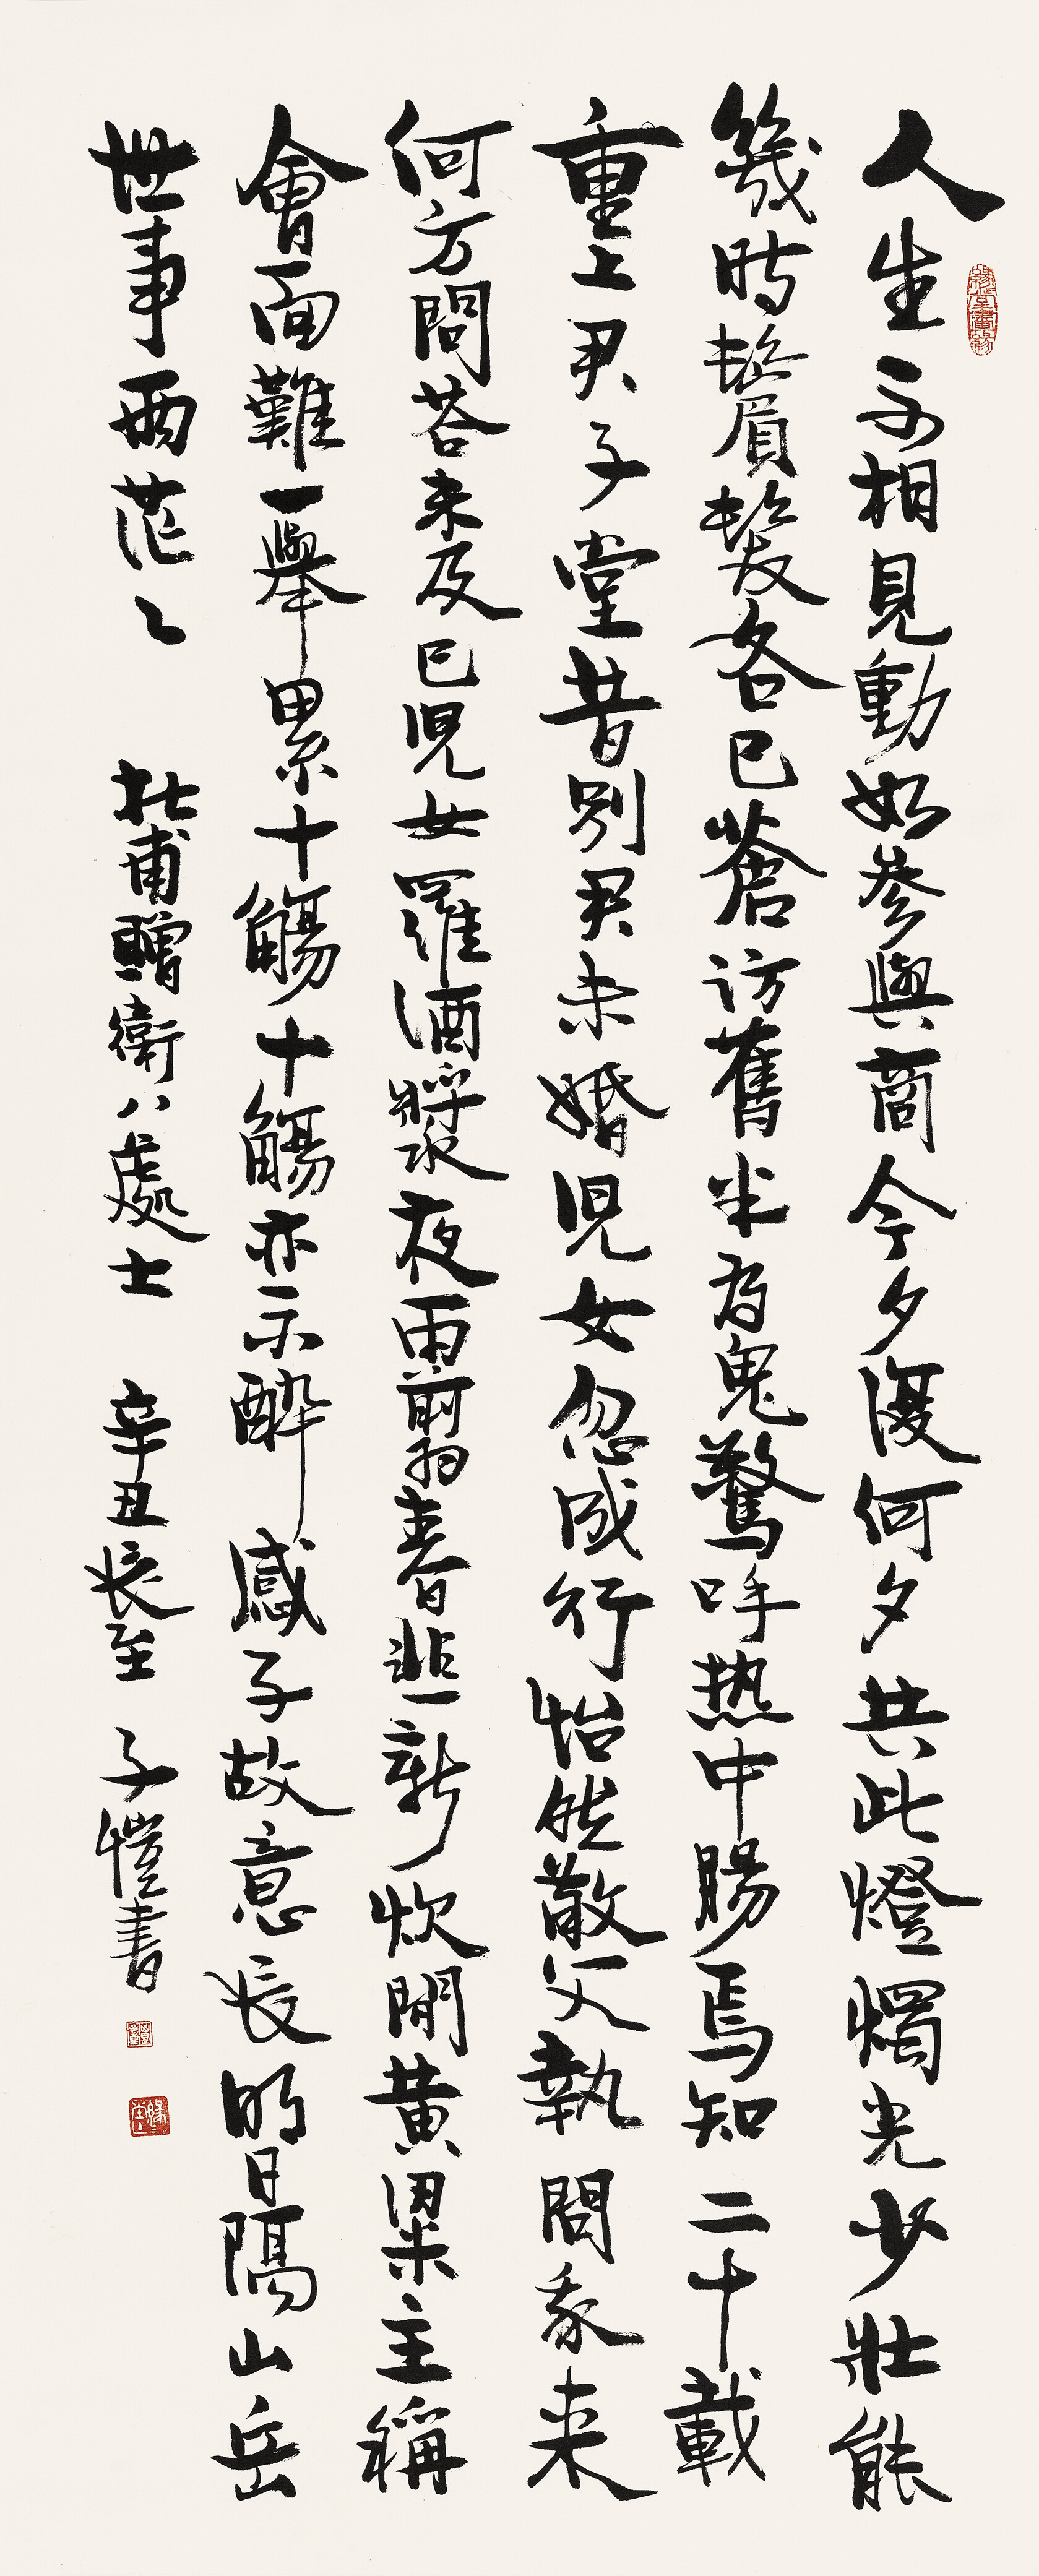 人生不相見動如參與商今夕復何夕共此燈燭光少壯能
幾時鬢眉鬢髮各已蒼訪舊半為鬼驚呼热中腸焉知二十載
重上君子堂昔別君未婚兒女忽成行怡然敬父執問我来
何方問荅未及已兒女羅酒漿夜雨翦春韭新炊間黃粱主稱
會面難一舉累十觴十觴亦不醉感子故意長明日隔山岳
世事兩茫々
杜甫贈衛八處士 辛丑長至 子愷書